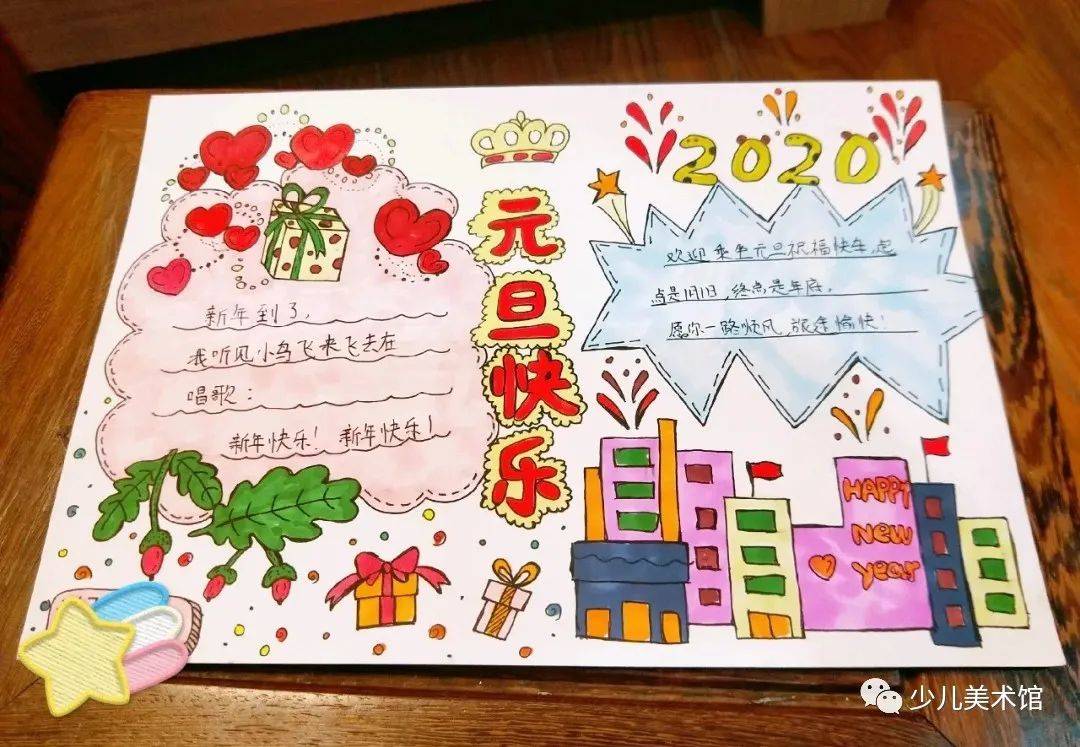 元旦快乐
2020
新年到了,
我听见小鸟飞来飞去在
唱歌:
新年快乐! 新年快乐!
欢迎乘坐元旦祝福快车,起
点是1月1日,终点是年底,
愿你一路顺风,旅途愉快!
HAPPY
New
Year
少儿美术馆